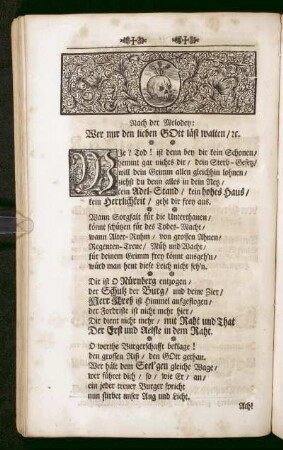 Nach der Melodey:
Wer nur den lieben GOtt läst walten/ ꝛc.
WIe? Tod! ist denn bey dir kein Schonen/
hemmt gar nichts dir/ dein Sterb-Gesetz/
will dein Grimm allen gleichhin lohnen/
ziehst du denn alles in dein Netz/
kein Adel-Stand/ kein hohes Haus/
kein Herrlichkeit/ geht dir frey aus.
Wann Sorgfalt für die Unterthanen/
könnt schützen für des Todes-Macht/
wann Alter-Ruhm/ von grossen Ahnen/
Regenten-Treue/ Müh und Wacht/
für deinem Grimm frey könnt ausgeh'n/
würd man hent diese Leich nicht seh'n.
Dir ist O Nürnberg entzogen/
der Schutz der Burg/ und deine Zier/
Herr ist Himmel aufgeflogen/
der Forderste ist nicht mehr hier/
Dir dient nicht mehr/ mit Raht und That
Der Erst und Aelste in dem Raht.
O werthe Burgerschafft beklage!
den grossen Riß/ den GOtt gethan.
Wer hält dem Seel'gen gleiche Wage/
wer führet dich/ so/ wie Er/ an/
ein jeder treuer Burger spricht
nun stirbet unser Aug und Licht.
Ach!